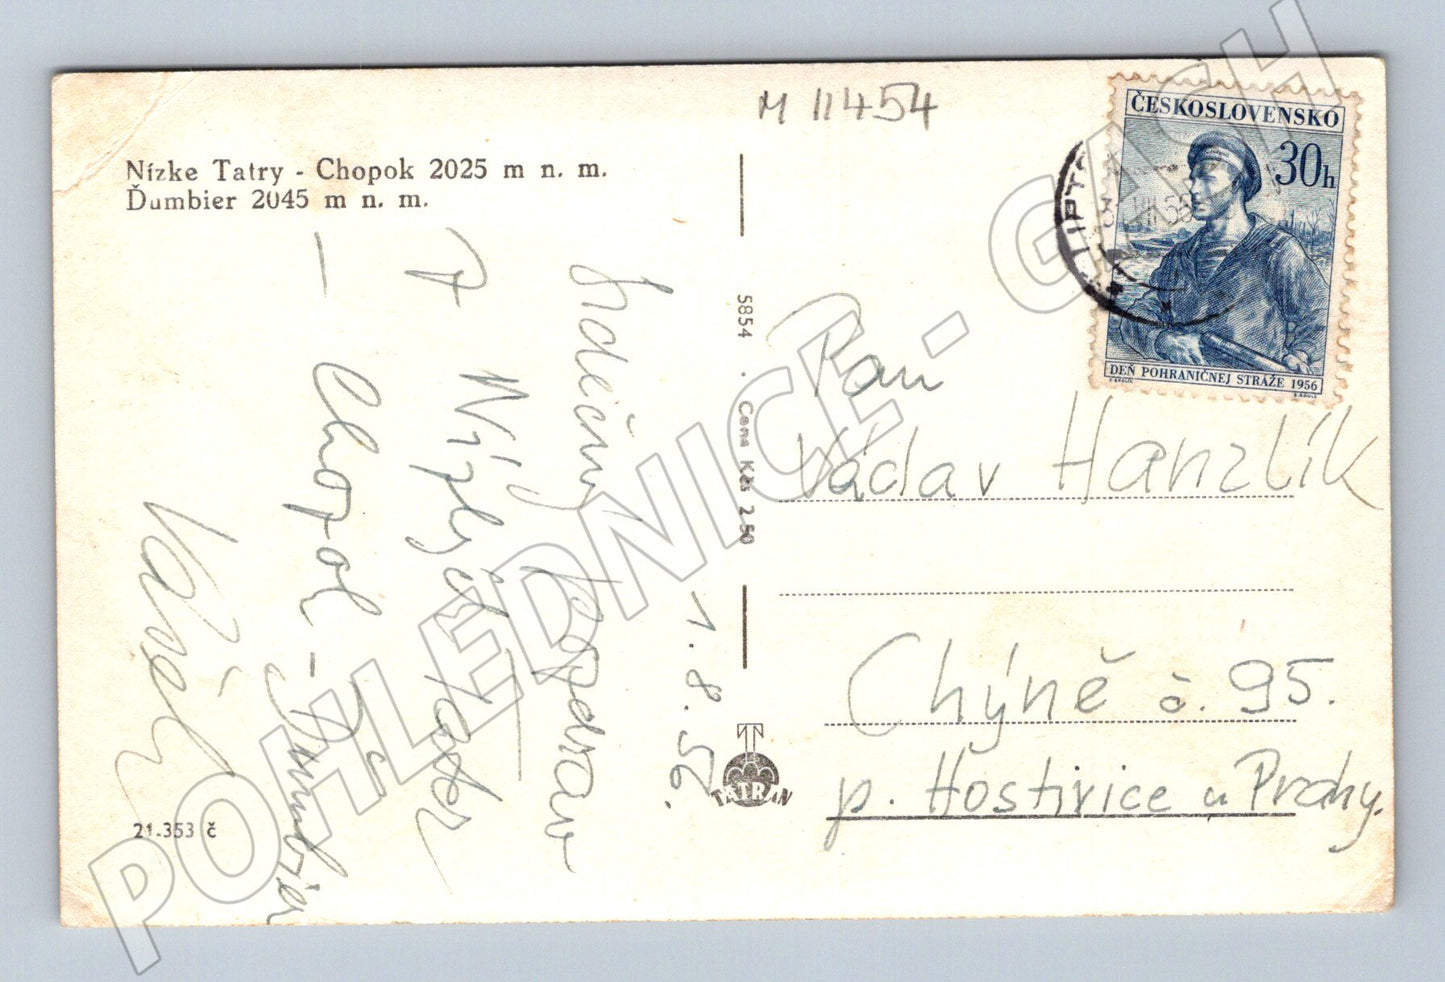 M 11454
Nízke Tatry - Chopok 2025 m n. m.
Ďumbier 2045 m n. m.
1. 8. 56.
Srdečný pozdrav
z Nízkých Tater
- Chopok - Ďumbier
Vašek
21.353 č
5854 . Cena Kčs 2.50
TATRAN
ČESKOSLOVENSKO
30h
DEŇ POHRANIČNEJ STRÁŽE 1956
LIPT
Pan
Václav Hanzlík
Chýně č. 95.
p. Hostivice u Prahy.
POHLEDNICE - GASH